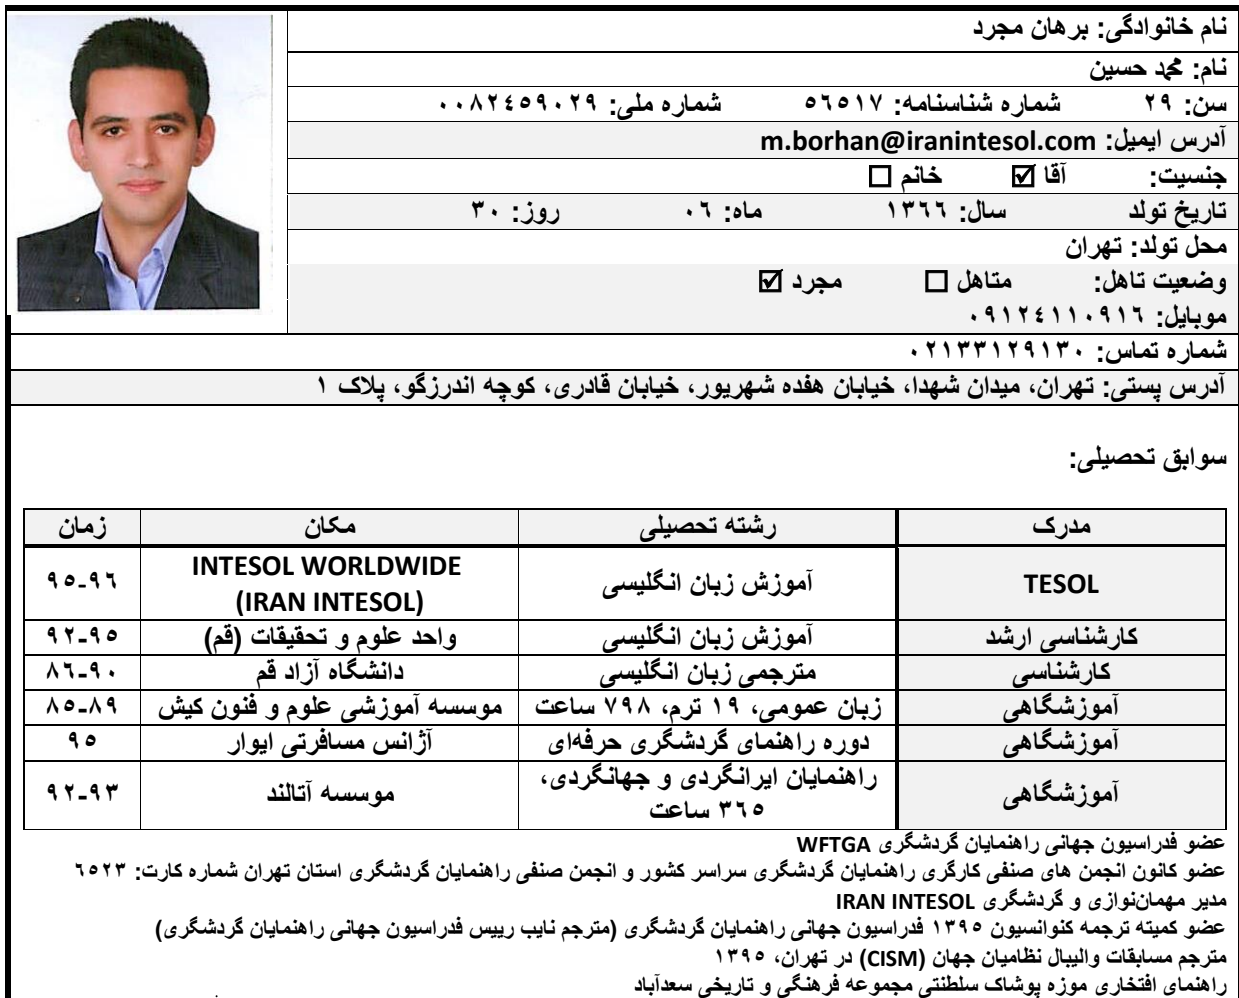 نام خانوادگی: برهان مجرد
نام: محمد حسین
سن: ۲۹ شماره شناسنامه: ۵۶۵۱۷ شماره ملی: ۰۰۸۲۴۵۹۰۲۹
آدرس ایمیل: m.borhan@iranintesol.com
جنسیت: آقا ☑ خانم ☐
تاریخ تولد سال: ۱۳۶۶ ماه: ۰۶ روز: ۳۰
محل تولد: تهران
وضعیت تاهل: متاهل ☐ مجرد ☑
موبایل: ۰۹۱۲۴۱۱۰۹۱۶
شماره تماس: ۰۲۱۳۳۱۲۹۱۳۰
آدرس پستی: تهران، میدان شهدا، خیابان هفده شهریور، خیابان قادری، کوچه اندرزگو، پلاک ۱
سوابق تحصیلی:
مدرک رشته تحصیلی مکان زمان
TESOL آموزش زبان انگلیسی INTESOL WORLDWIDE (IRAN INTESOL) ۹۵-۹۶
کارشناسی ارشد آموزش زبان انگلیسی واحد علوم و تحقیقات (قم) ۹۲-۹۵
کارشناسی مترجمی زبان انگلیسی دانشگاه آزاد قم ۸۶-۹۰
آموزشگاهی زبان عمومی، ۱۹ ترم، ۷۹۸ ساعت موسسه آموزشی علوم و فنون کیش ۸۵-۸۹
آموزشگاهی دوره راهنمای گردشگری حرفه‌ای آژانس مسافرتی ایوار ۹۵
آموزشگاهی راهنمایان ایرانگردی و جهانگردی، ۳۶۵ ساعت موسسه آتالند ۹۲-۹۳
عضو فدراسیون جهانی راهنمایان گردشگری WFTGA
عضو کانون انجمن های صنفی کارگری راهنمایان گردشگری سراسر کشور و انجمن صنفی راهنمایان گردشگری استان تهران شماره کارت: ۶۵۲۳
مدیر مهمان‌نوازی و گردشگری IRAN INTESOL
عضو کمیته ترجمه کنوانسیون ۱۳۹۵ فدراسیون جهانی راهنمایان گردشگری (مترجم نایب رییس فدراسیون جهانی راهنمایان گردشگری)
مترجم مسابقات والیبال نظامیان جهان (CISM) در تهران، ۱۳۹۵
راهنمای افتخاری موزه پوشاک سلطنتی مجموعه فرهنگی و تاریخی سعدآباد